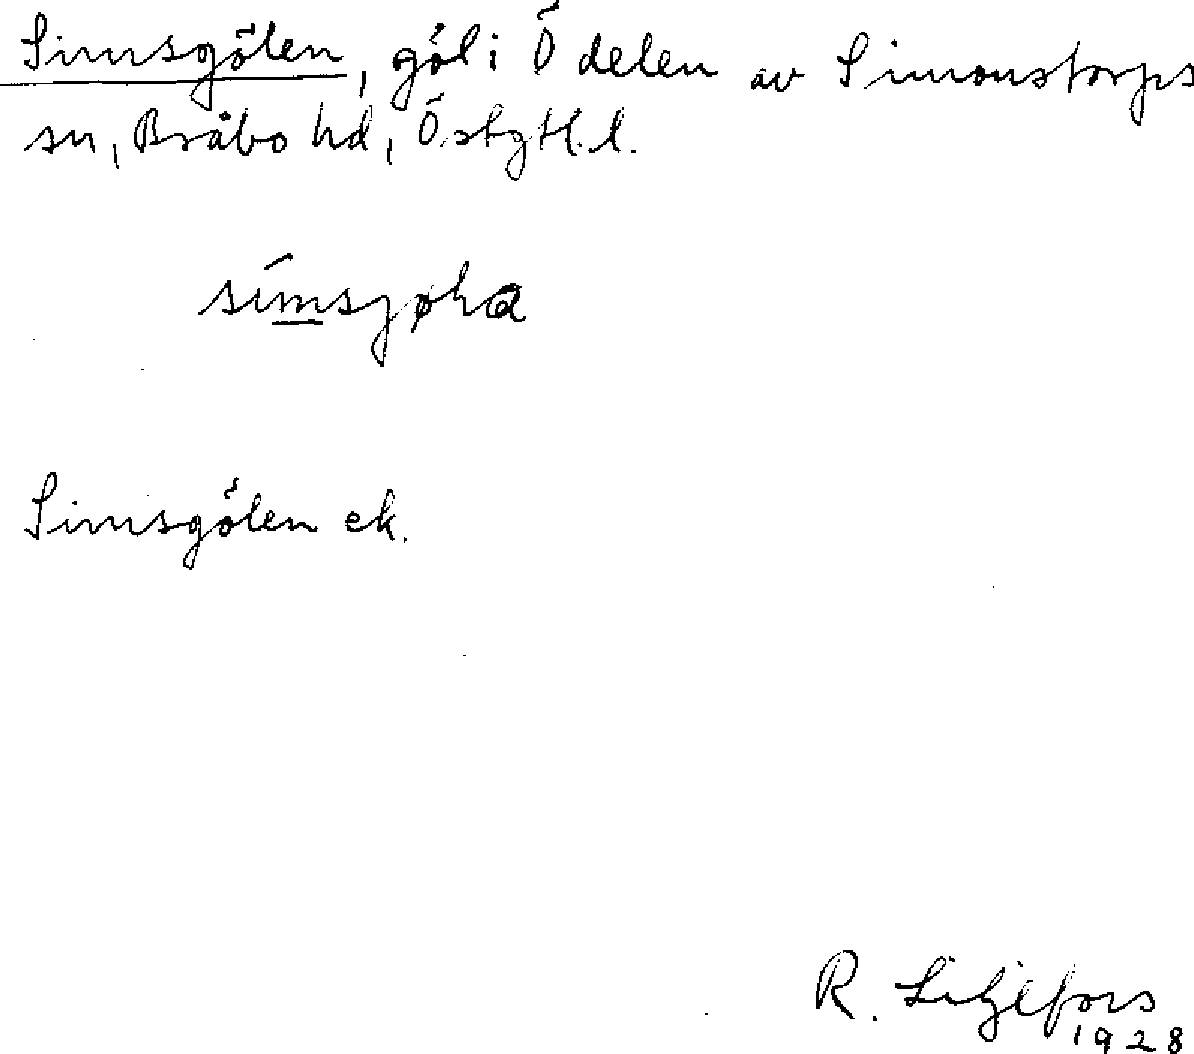 Simsgölen, göl i Ö delen av Simonstorps
sn, Bråbo hd, Östgtl. l.
Simsgölen ek.
R. Liljefors
1928